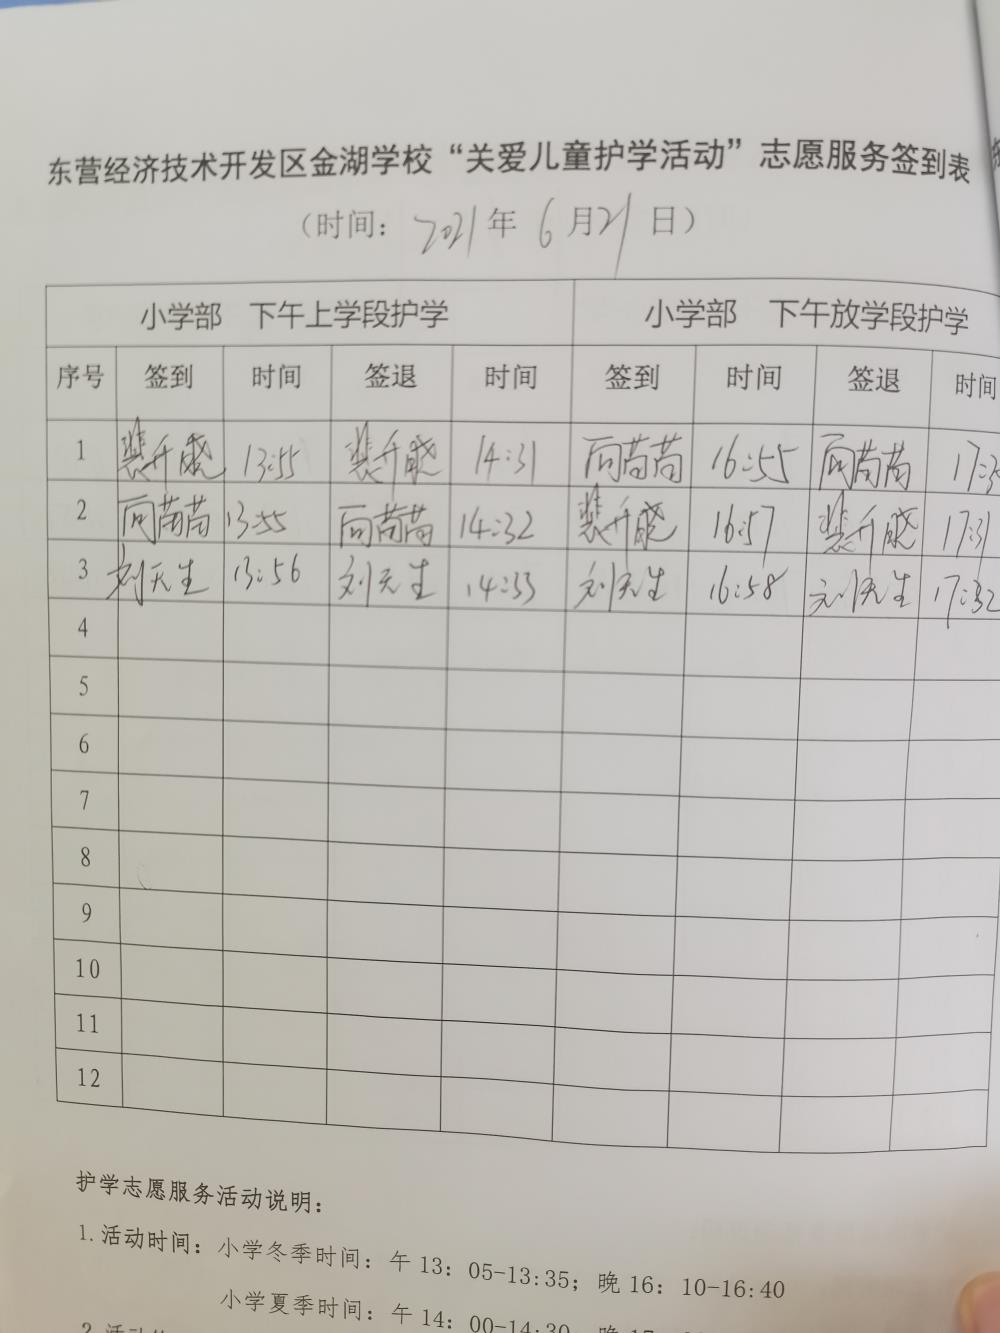 东营经济技术开发区金湖学校“关爱儿童护学活动”志愿服务签到表
（时间：2021年 6月21日）
小学部 下午上学段护学 小学部 下午放学段护学
序号 签到 时间 签退 时间 签到 时间 签退 时间
1 裴升晓 13:55 裴升晓 14:31 苘苗 16:55 苘苗 17:3
2 苘苗 13:55 苘苗 14:32 裴升晓 16:57 裴升晓 17:31
3 刘天生 13:56 刘天生 14:33 刘天生 16:58 刘天生 17:32
4
5
6
7
8
9
10
11
12
护学志愿服务活动说明：
1.活动时间：小学冬季时间：午 13：05-13:35；晚 16：10-16:40
小学夏季时间：午 14：00-14:30 晚 17
2.活动